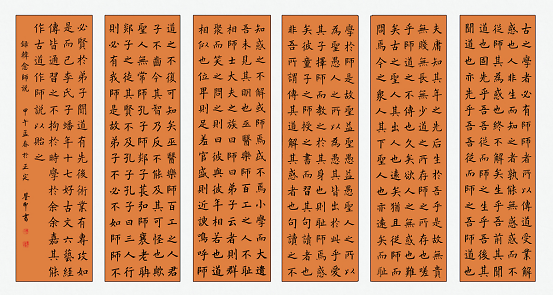 古之學者必有師師者所以傳道受業解
惑也人非生而知之者孰能無惑惑而不
從師其為惑也終不解矣生乎吾前其聞
道也固先乎吾吾從而師之生乎吾後其
聞道也亦先乎吾吾從而師之吾師道也
夫庸知其年之先后生於吾乎是故無貴
無賤無長無少道之所存師之所存也嗟
乎師道之不傳也久矣欲人之無惑也難
矣古之聖人其出人也遠矣猶且從師而
問焉今之衆人其下聖人也亦遠矣而恥
學於師是故聖益聖愚益愚聖人之所以
為聖愚人之所以為愚其皆出於此乎愛
其子擇師而教之於其身也則恥師焉惑
矣彼童子之師授之書而習其句讀者也
非吾所謂傳其道解其惑者也句讀之不
知惑之不解或師焉或不焉小學而大遺
吾未見其明也巫醫樂師百工之人不恥
相師士大夫之族曰師曰弟子云者則群
聚而笑之問之則曰彼與彼年相若也道
相似也位卑則足羞官盛則近諛嗚呼師
道之不復可知矣巫醫樂師百工之人君
子不齒今其智乃反不能及其可怪也歟
聖人無常師孔子師郯子萇弘師襄老聃
郯子之徒其賢不及孔子孔子曰三人行
則必有我師是故弟子不必不如師師不
必賢於弟子聞道有先後術業有專攻如
是而已李氏子蟠年十七好古文六藝經
傳皆通習之不拘於時學於余余嘉其能
作古道作師說以貽之
錄韓愈師說 甲午孟春於正定 書